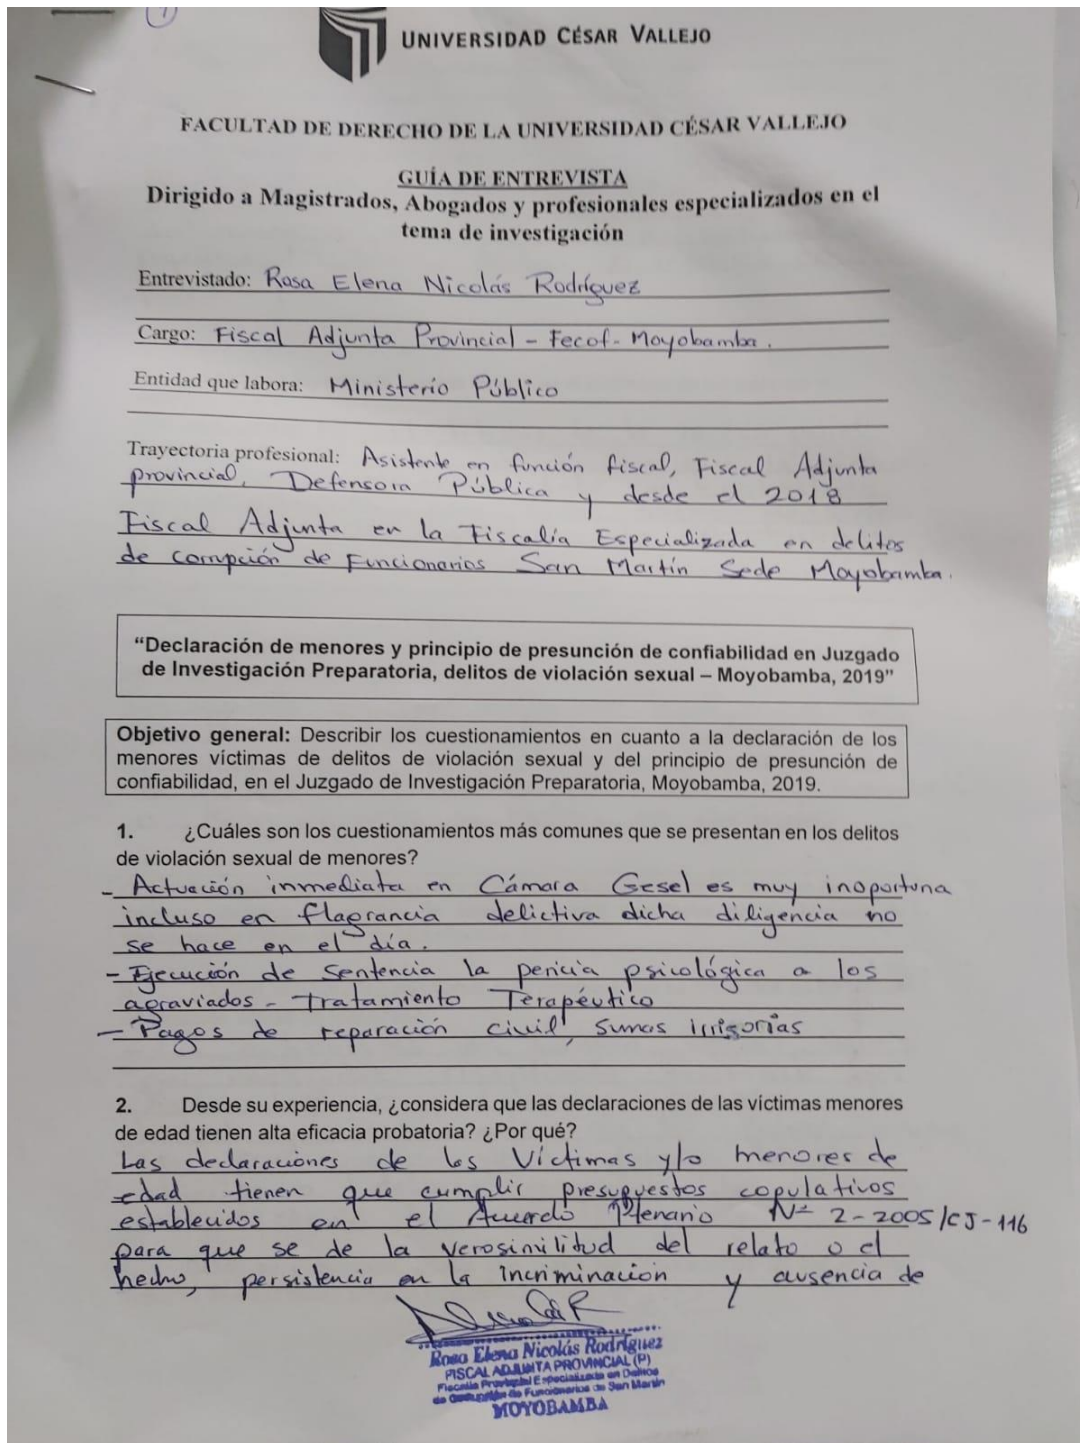 1
UNIVERSIDAD CÉSAR VALLEJO
FACULTAD DE DERECHO DE LA UNIVERSIDAD CÉSAR VALLEJO
GUÍA DE ENTREVISTA
Dirigido a Magistrados, Abogados y profesionales especializados en el
tema de investigación
Entrevistado: Rosa Elena Nicolás Rodríguez
Cargo: Fiscal Adjunta Provincial - Fecof- Moyobamba.
Entidad que labora: Ministerio Público
Trayectoria profesional: Asistente en función fiscal, Fiscal Adjunta
provincial, Defensora Pública y desde el 2018
Fiscal Adjunta en la Fiscalía Especializada en delitos
de corrupción de Funcionarios San Martín Sede Moyobamba.
“Declaración de menores y principio de presunción de confiabilidad en Juzgado
de Investigación Preparatoria, delitos de violación sexual – Moyobamba, 2019”
Objetivo general: Describir los cuestionamientos en cuanto a la declaración de los
menores víctimas de delitos de violación sexual y del principio de presunción de
confiabilidad, en el Juzgado de Investigación Preparatoria, Moyobamba, 2019.
1. ¿Cuáles son los cuestionamientos más comunes que se presentan en los delitos
de violación sexual de menores?
- Actuación inmediata en Cámara Gesel es muy inoportuna
incluso en flagrancia delictiva dicha diligencia no
se hace en el día.
- Ejecución de sentencia la pericia psicológica a los
agraviados - Tratamiento Terapéutico
- Pagos de reparación civil, sumas irrisorias
2. Desde su experiencia, ¿considera que las declaraciones de las víctimas menores
de edad tienen alta eficacia probatoria? ¿Por qué?
Las declaraciones de los Víctimas y/o menores de
edad tienen que cumplir presupuestos copulativos
establecidos en el Acuerdo Plenario N° 2-2005/CJ-116
para que se de la verosimilitud del relato o el
hecho, persistencia en la incriminación y ausencia de
Rosa Elena Nicolás Rodríguez
FISCAL ADJUNTA PROVINCIAL (P)
Fiscalía Provincial Especializada en Delitos
de Corrupción de Funcionarios de San Martín
MOYOBAMBA